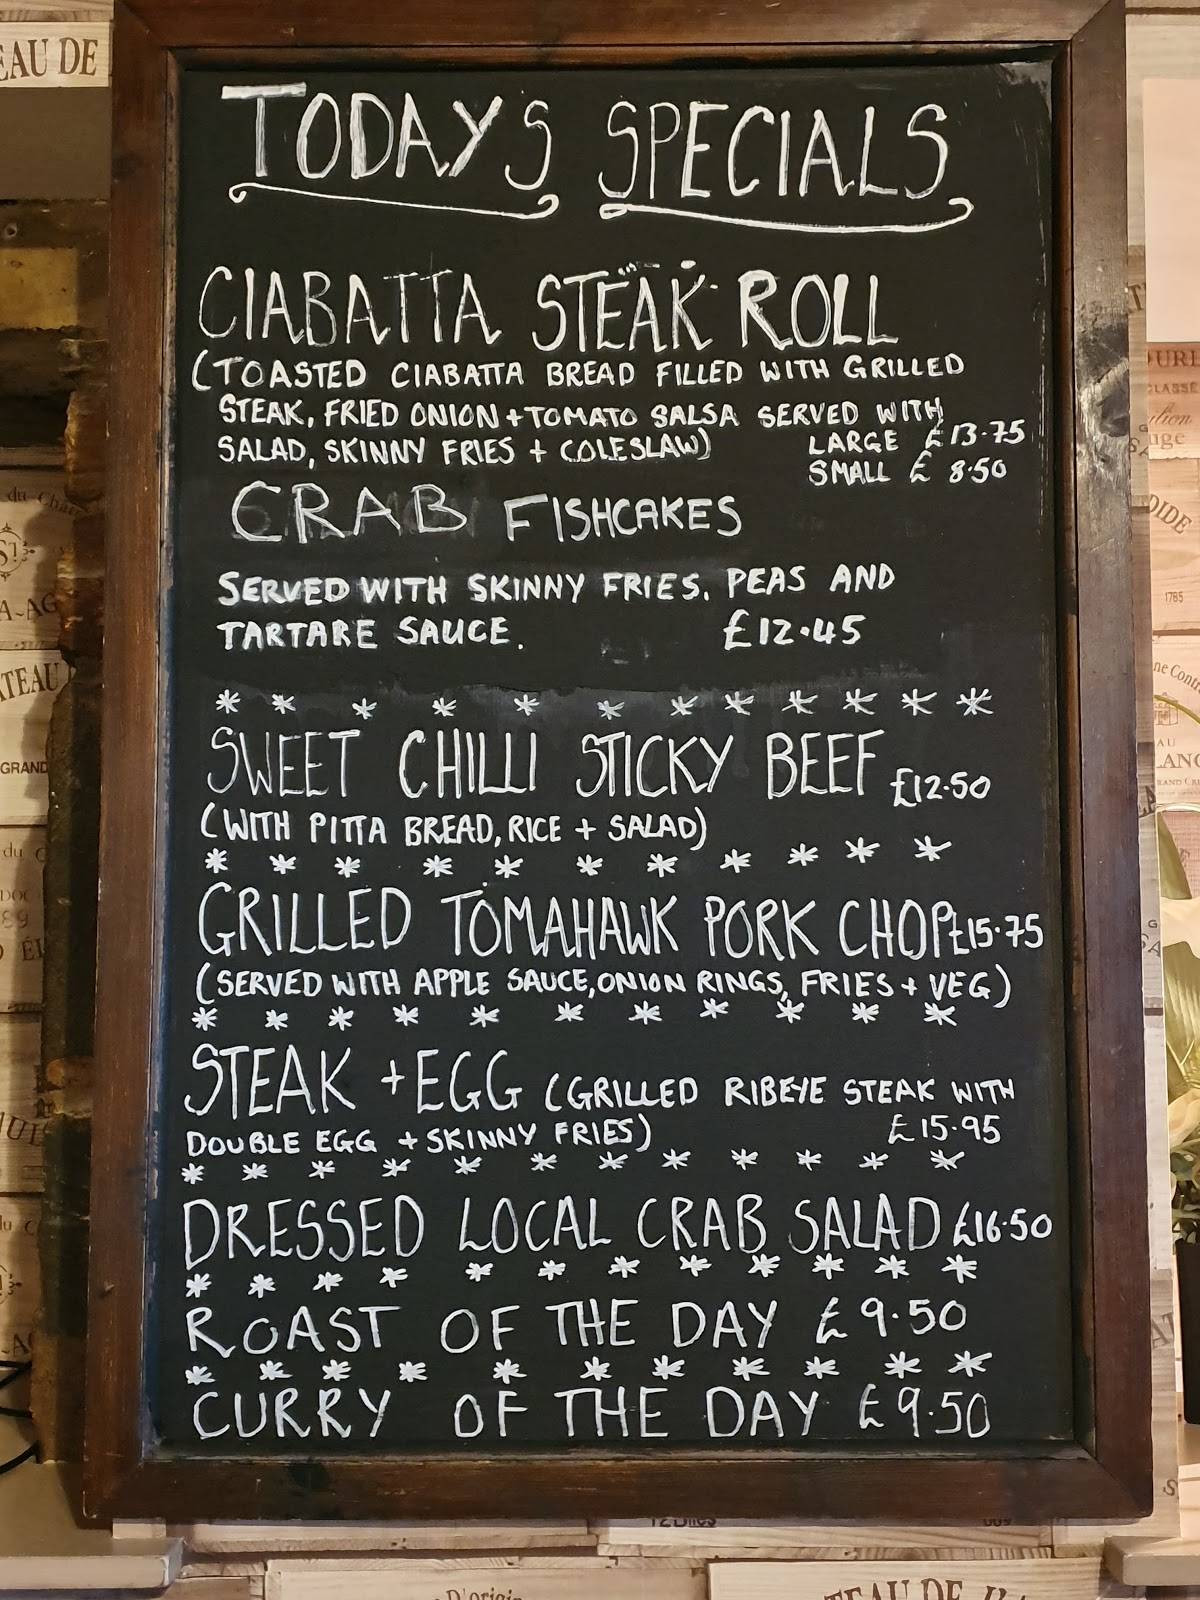 TODAYS SPECIALS
CIABATTA STEAK ROLL
(TOASTED CIABATTA BREAD FILLED WITH GRILLED
STEAK, FRIED ONION + TOMATO SALSA SERVED WITH
SALAD, SKINNY FRIES + COLESLAW)
LARGE £13.75
SMALL £ 8.50
CRAB FISHCAKES
SERVED WITH SKINNY FRIES. PEAS AND
TARTARE SAUCE. £12.45
* * * * * * * * * * * *
SWEET CHILLI STICKY BEEF £12.50
(WITH PITTA BREAD, RICE + SALAD)
* * * * * * * * * * *
GRILLED TOMAHAWK PORK CHOP £15.75
(SERVED WITH APPLE SAUCE, ONION RINGS, FRIES + VEG)
* * * * * * * * * * *
STEAK + EGG (GRILLED RIBEYE STEAK WITH
DOUBLE EGG + SKINNY FRIES) £15.95
* * * * * * * * * * * *
DRESSED LOCAL CRAB SALAD £16.50
* * * * * * * * * * * *
ROAST OF THE DAY £9.50
* * * * * * * * * * *
CURRY OF THE DAY £9.50
EAU DE
GRAND
1785
D'origin